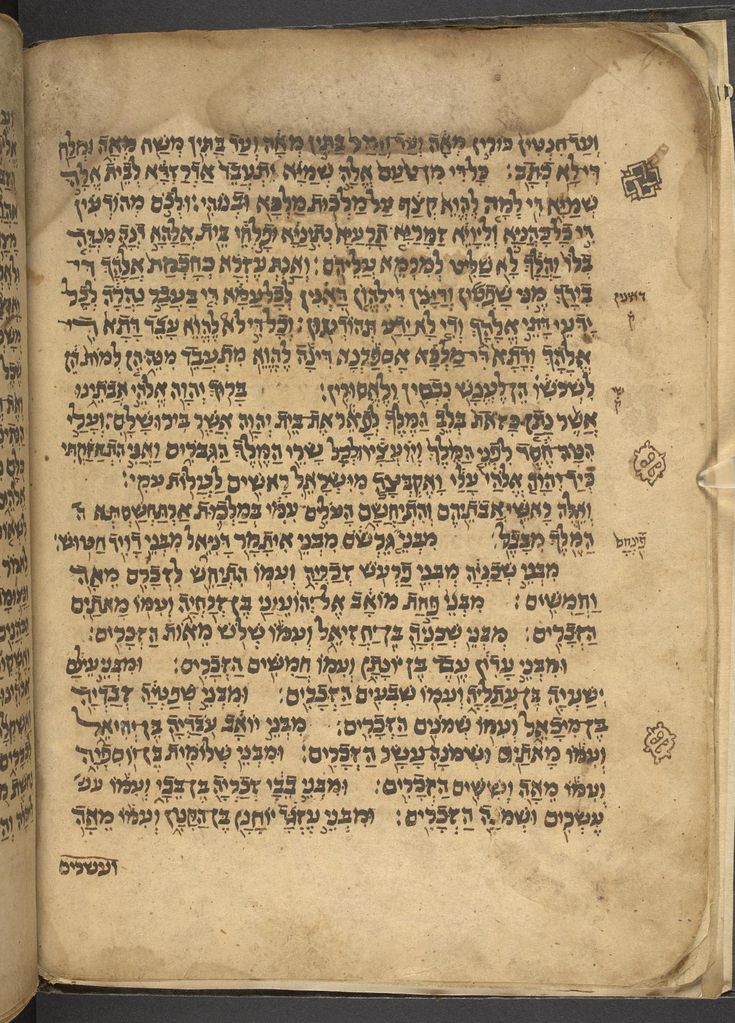 ועד חנטין כורין מאה ועד חמר בתין מאה ועד בתין משח מאה ומלח
די לא כתב: כל די מן טעם אלה שמיא יתעבד אדרזדא לבית אלה
שמיא די למה להוא קצף על מלכות מלכא ובנוהי: ולכם מהודעין
די כל כהניא ולויא זמריא תרעיא נתיניא ופלחי בית אלהא דנה מנדה
בלו והלך לא שליט למרמא עליהם: ואנת עזרא כחכמת אלהך די
בידך מני שפטין ודינין די להון דאנין לכל עמא די בעבר נהרה לכל
דאנין
ק
ידעי דתי אלהך ודי לא ידע תהודעון: וכל די לא להוא עבד דתא די
אלהך ודתא די מלכא אספרנא דינה להוא מתעבד מנה הן למות הן
לשרשו הן לענש נכסין ולאסורין: ברוך יהוה אלהי אבתינו
שי
ק
אשר נתן כזאת בלב המלך לפאר את בית יהוה אשר בירושלם: ועלי
הטה חסד לפני המלך ויועציו ולכל שרי המלך הגברים ואני התחזקתי
כיד יהוה אלהי עלי ואקבצה מישראל ראשים לעלות עמי:
ואלה ראשי אבתיהם והתיחשם העלים עמי במלכות ארתחשסתא ה
המלך מבבל: מבני גרשם מבני איתמר דניאל מבני דויד חטוש:
פינחס
מבני שכניה מבני פרעש זכריה ועמו התיחש לזכרים מאה
וחמשים: מבני פחת מואב אליהועיני בן זרחיה ועמו מאתים
הזכרים: מבני שכניה בן יחזיאל ועמו שלש מאות הזכרים:
ומבני עדין עבד בן יונתן ועמו חמשים הזכרים: ומבני עילם
ישעיה בן עתליה ועמו שבעים הזכרים: ומבני שפטיה זבדיה
בן מיכאל ועמו שמנים הזכרים: מבני יואב עבדיה בן יחיאל
ועמו מאתים ושמנה עשר הזכרים: ומבני שלומית בן יוספיה
ועמו מאה וששים הזכרים: ומבני בבי זכריה בן בבי ועמו עש
עשרים ושמנה הזכרים: ומבני עזגד יוחנן בן הקטן ועמו מאה
ועשרים